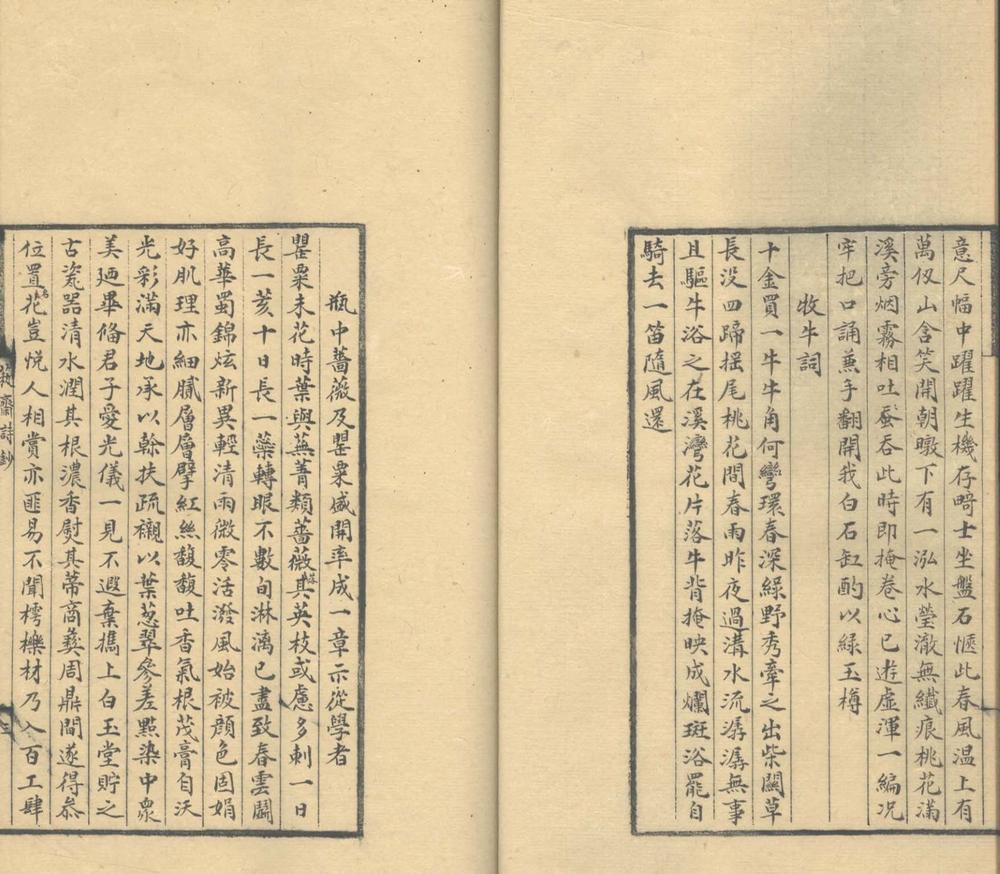 意尺幅中躍躍生機存畸士坐盤石愜此春風温上有
萬仭山含笑開朝暾下有一泓水瑩澈無纖痕桃花滿
溪旁烟霧相吐吞此時即掩卷心已遊虛渾一編况
牢把口誦蒹手翻開我白石缸酌以綠玉樽
牧牛詞
十金買一牛牛角何彎環春深綠野秀牽之出柴關草
長没四蹄摇尾桃花間春雨昨夜過溝水流潺潺無事
且驅牛浴之在溪灣花片落牛背掩映成爛斑浴罷自
騎去一笛隨風還
瓶中薔薇及罌粟盛開率成一章示從學者
罌粟未花時葉與蕪菁類薔薇其英枝或慮多刺一日
長一荄十日長一藥轉眼不數旬淋漓已盡致春雲鬭
高華蜀錦炫新異輕清雨微零活潑風始被顔色固娟
好肌理亦細膩層層擘紅絲馥馥吐香氣根茂膏自沃
光彩滿天地承以榦扶疏襯以葉葱翠參差㸃染中衆
美廼畢俻君子愛光儀一見不遐棄攜上白玉堂貯之
古瓷器清水潤其根濃香熨其蒂商彝周鼎間遂得叅
位置名花豈悦人相賞亦匪易不聞樗櫟材乃入百工肆
齋詩鈔